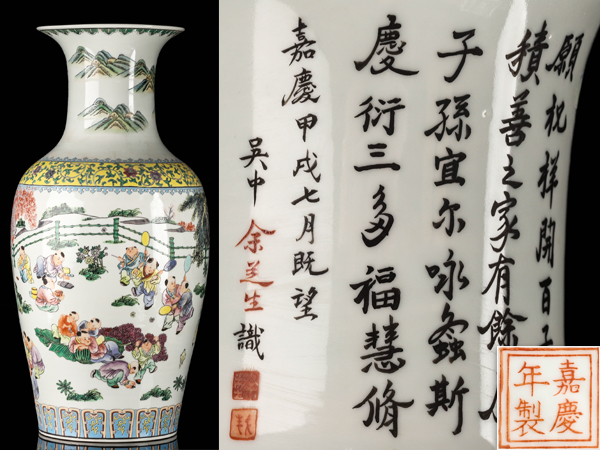 願祝祥開百子
積善之家有餘
子孫宜尔咏螽斯
慶衍三多福慧脩
嘉慶甲戌七月既望
吳中余芝生識
嘉慶
年製